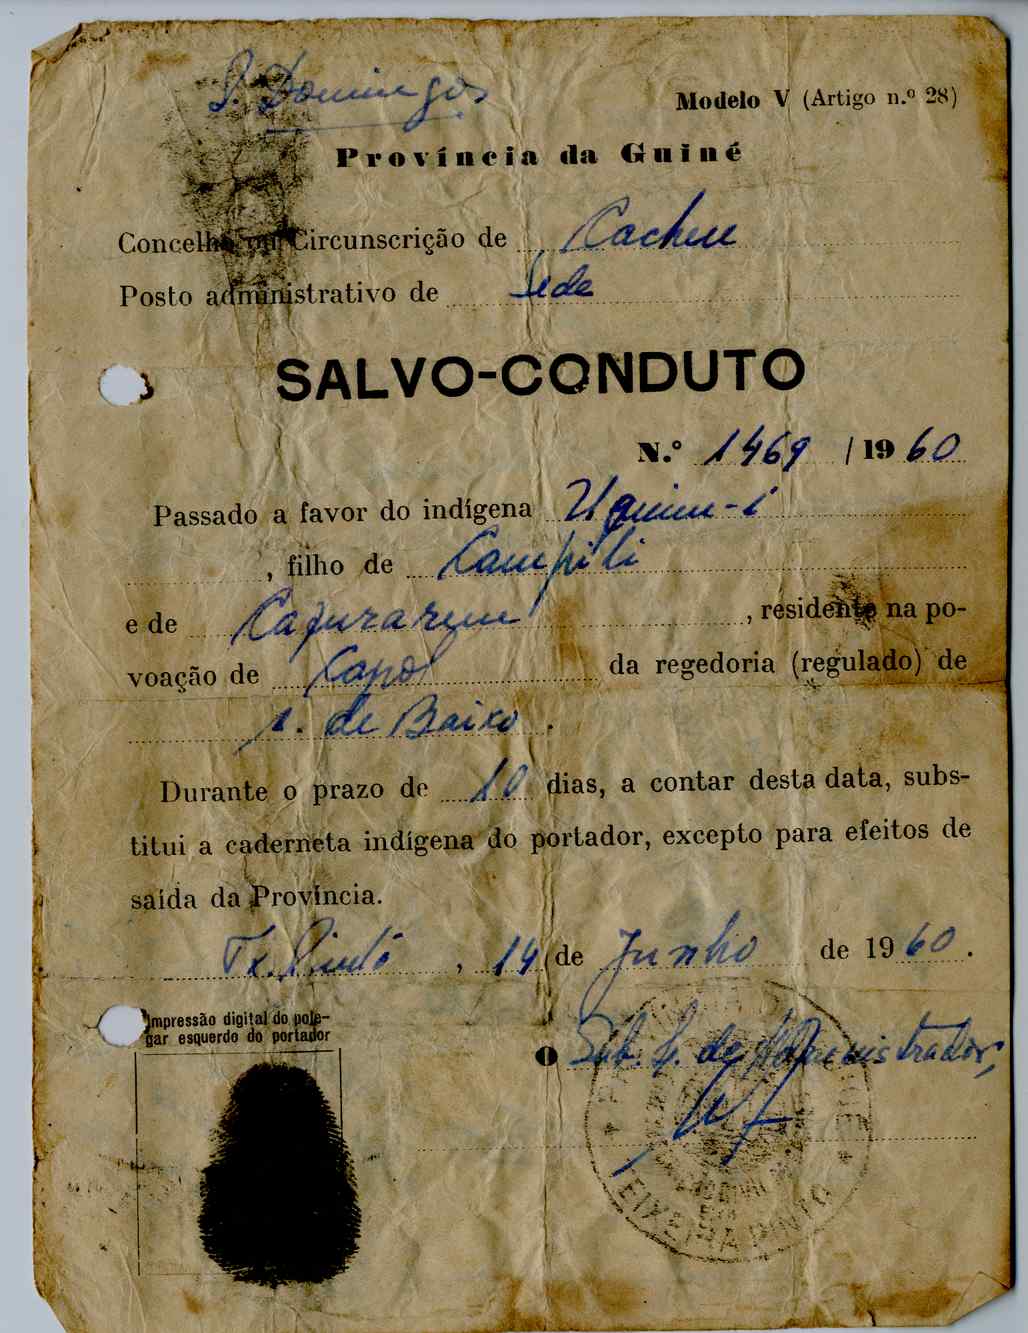 S. Domingos
Modelo V (Artigo n.º 28)
Província da Guiné
Concelho ou Circunscrição de Cacheu
Posto administrativo de Sede
SALVO-CONDUTO
N.º 1469 / 1960
Passado a favor do indígena
, filho de Campili
e de , residente na po-
voação de Capol da regedoria (regulado) de
de Baixo.
Durante o prazo de 10 dias, a contar desta data, subs-
titui a caderneta indígena do portador, excepto para efeitos de
saída da Província.
Tx. Pinto, 14 de Junho de 1960.
Impressão digital do pole-
gar esquerdo do portador
O de Administrador,
TEIXEIRA PINTO